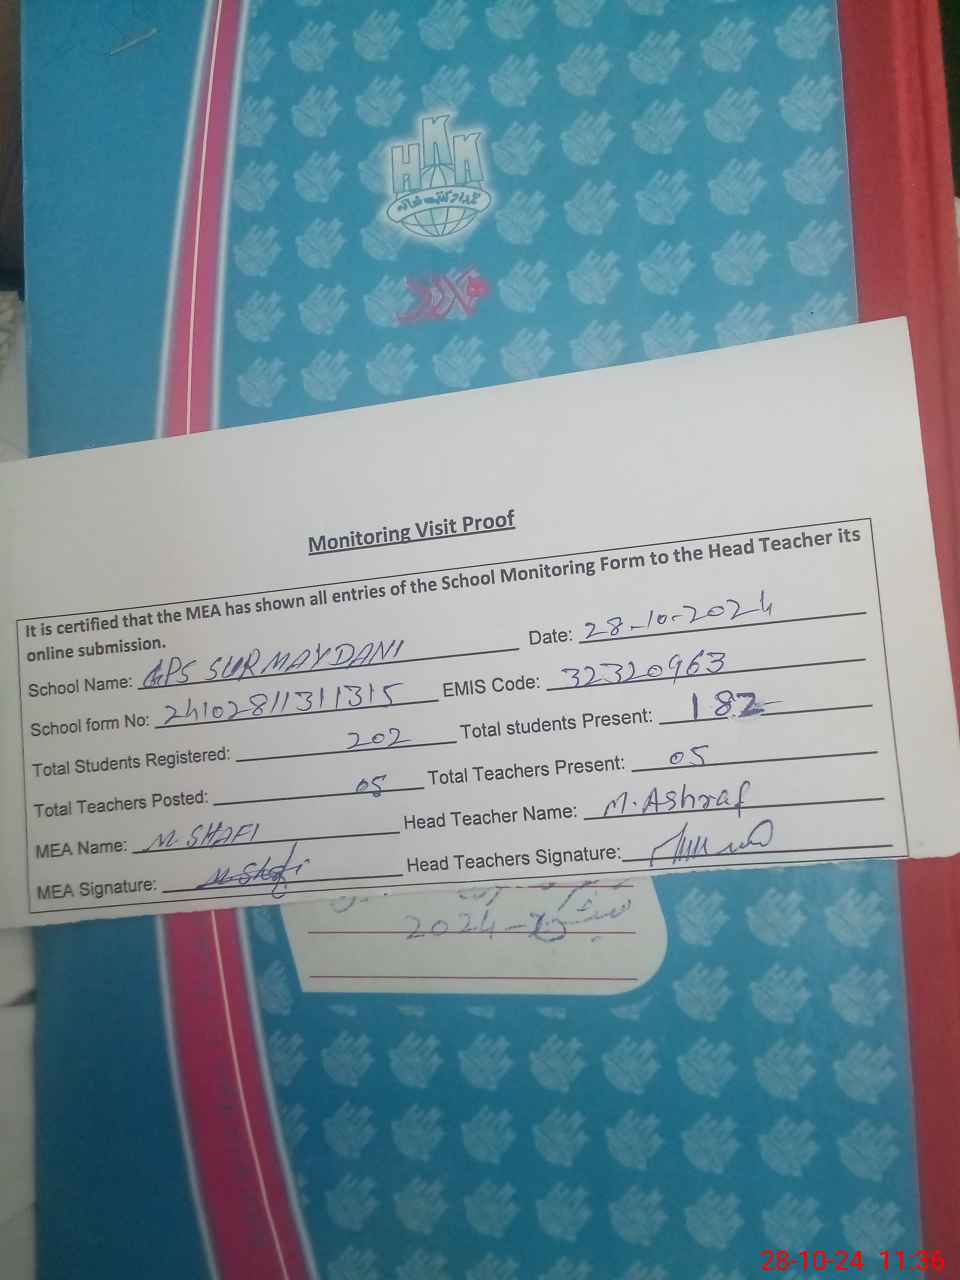 HKK
Monitoring Visit Proof
It is certified that the MEA has shown all entries of the School Monitoring Form to the Head Teacher its
online submission.
School Name: GPS SUR MAYDANI Date: 28-10-2024
School form No: 24102811311315 EMIS Code: 32320963
Total Students Registered: 202 Total students Present: 182
Total Teachers Posted: 05 Total Teachers Present: 05
MEA Name: M. SHAFI Head Teacher Name: M. Ashraf
MEA Signature: M. Shafi Head Teachers Signature:
2024
28-10-24 11:36